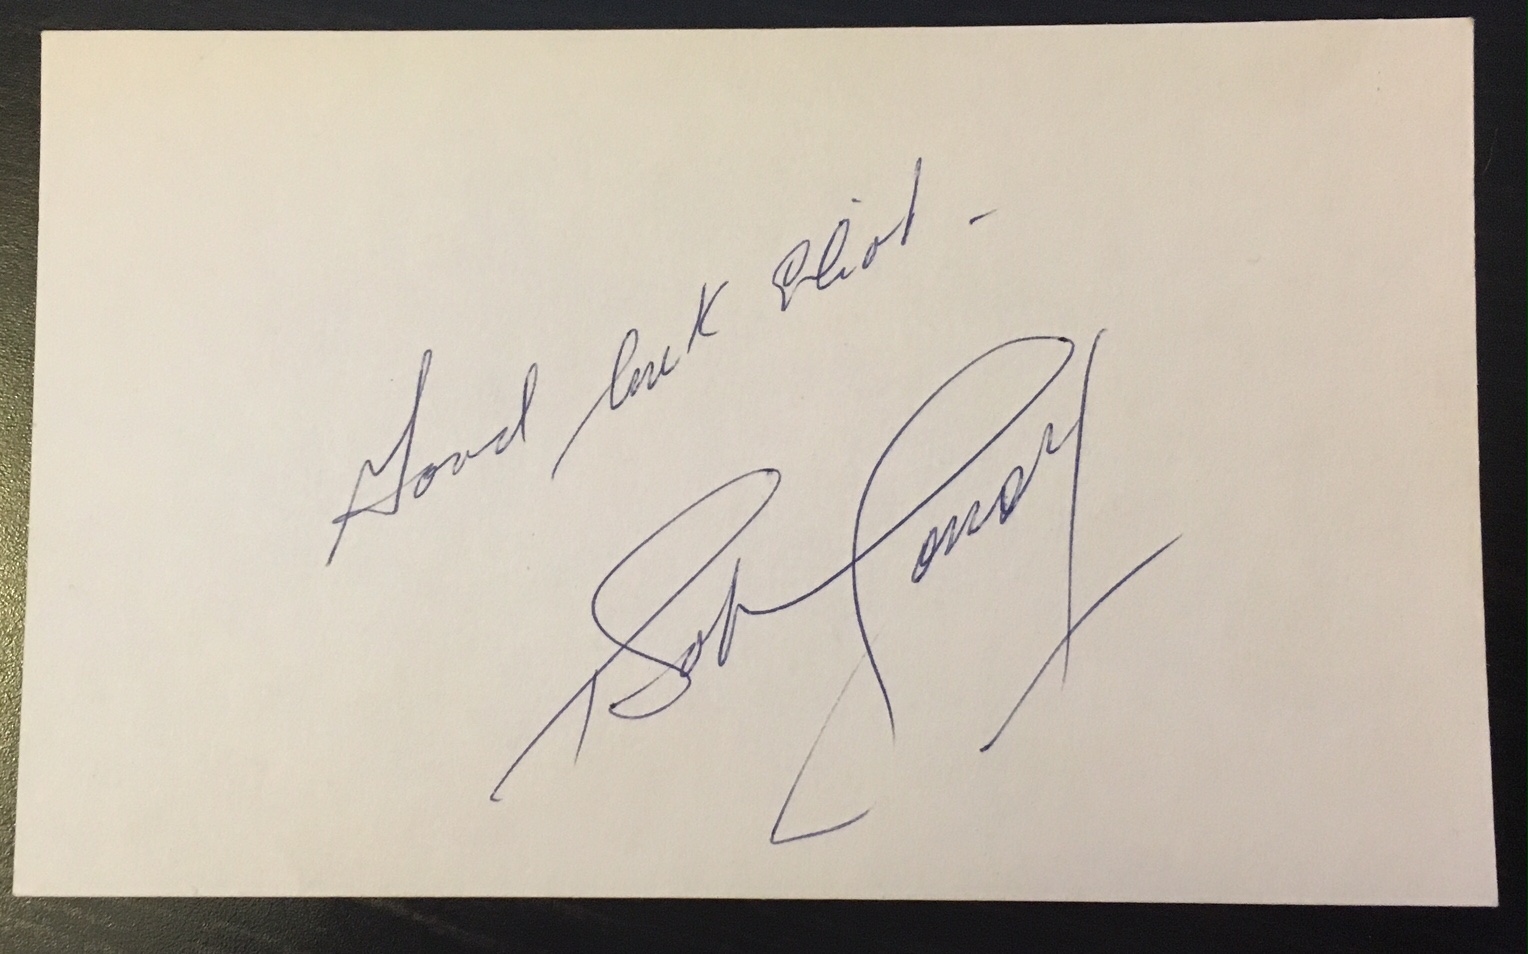 Good luck Eliot -
Bob